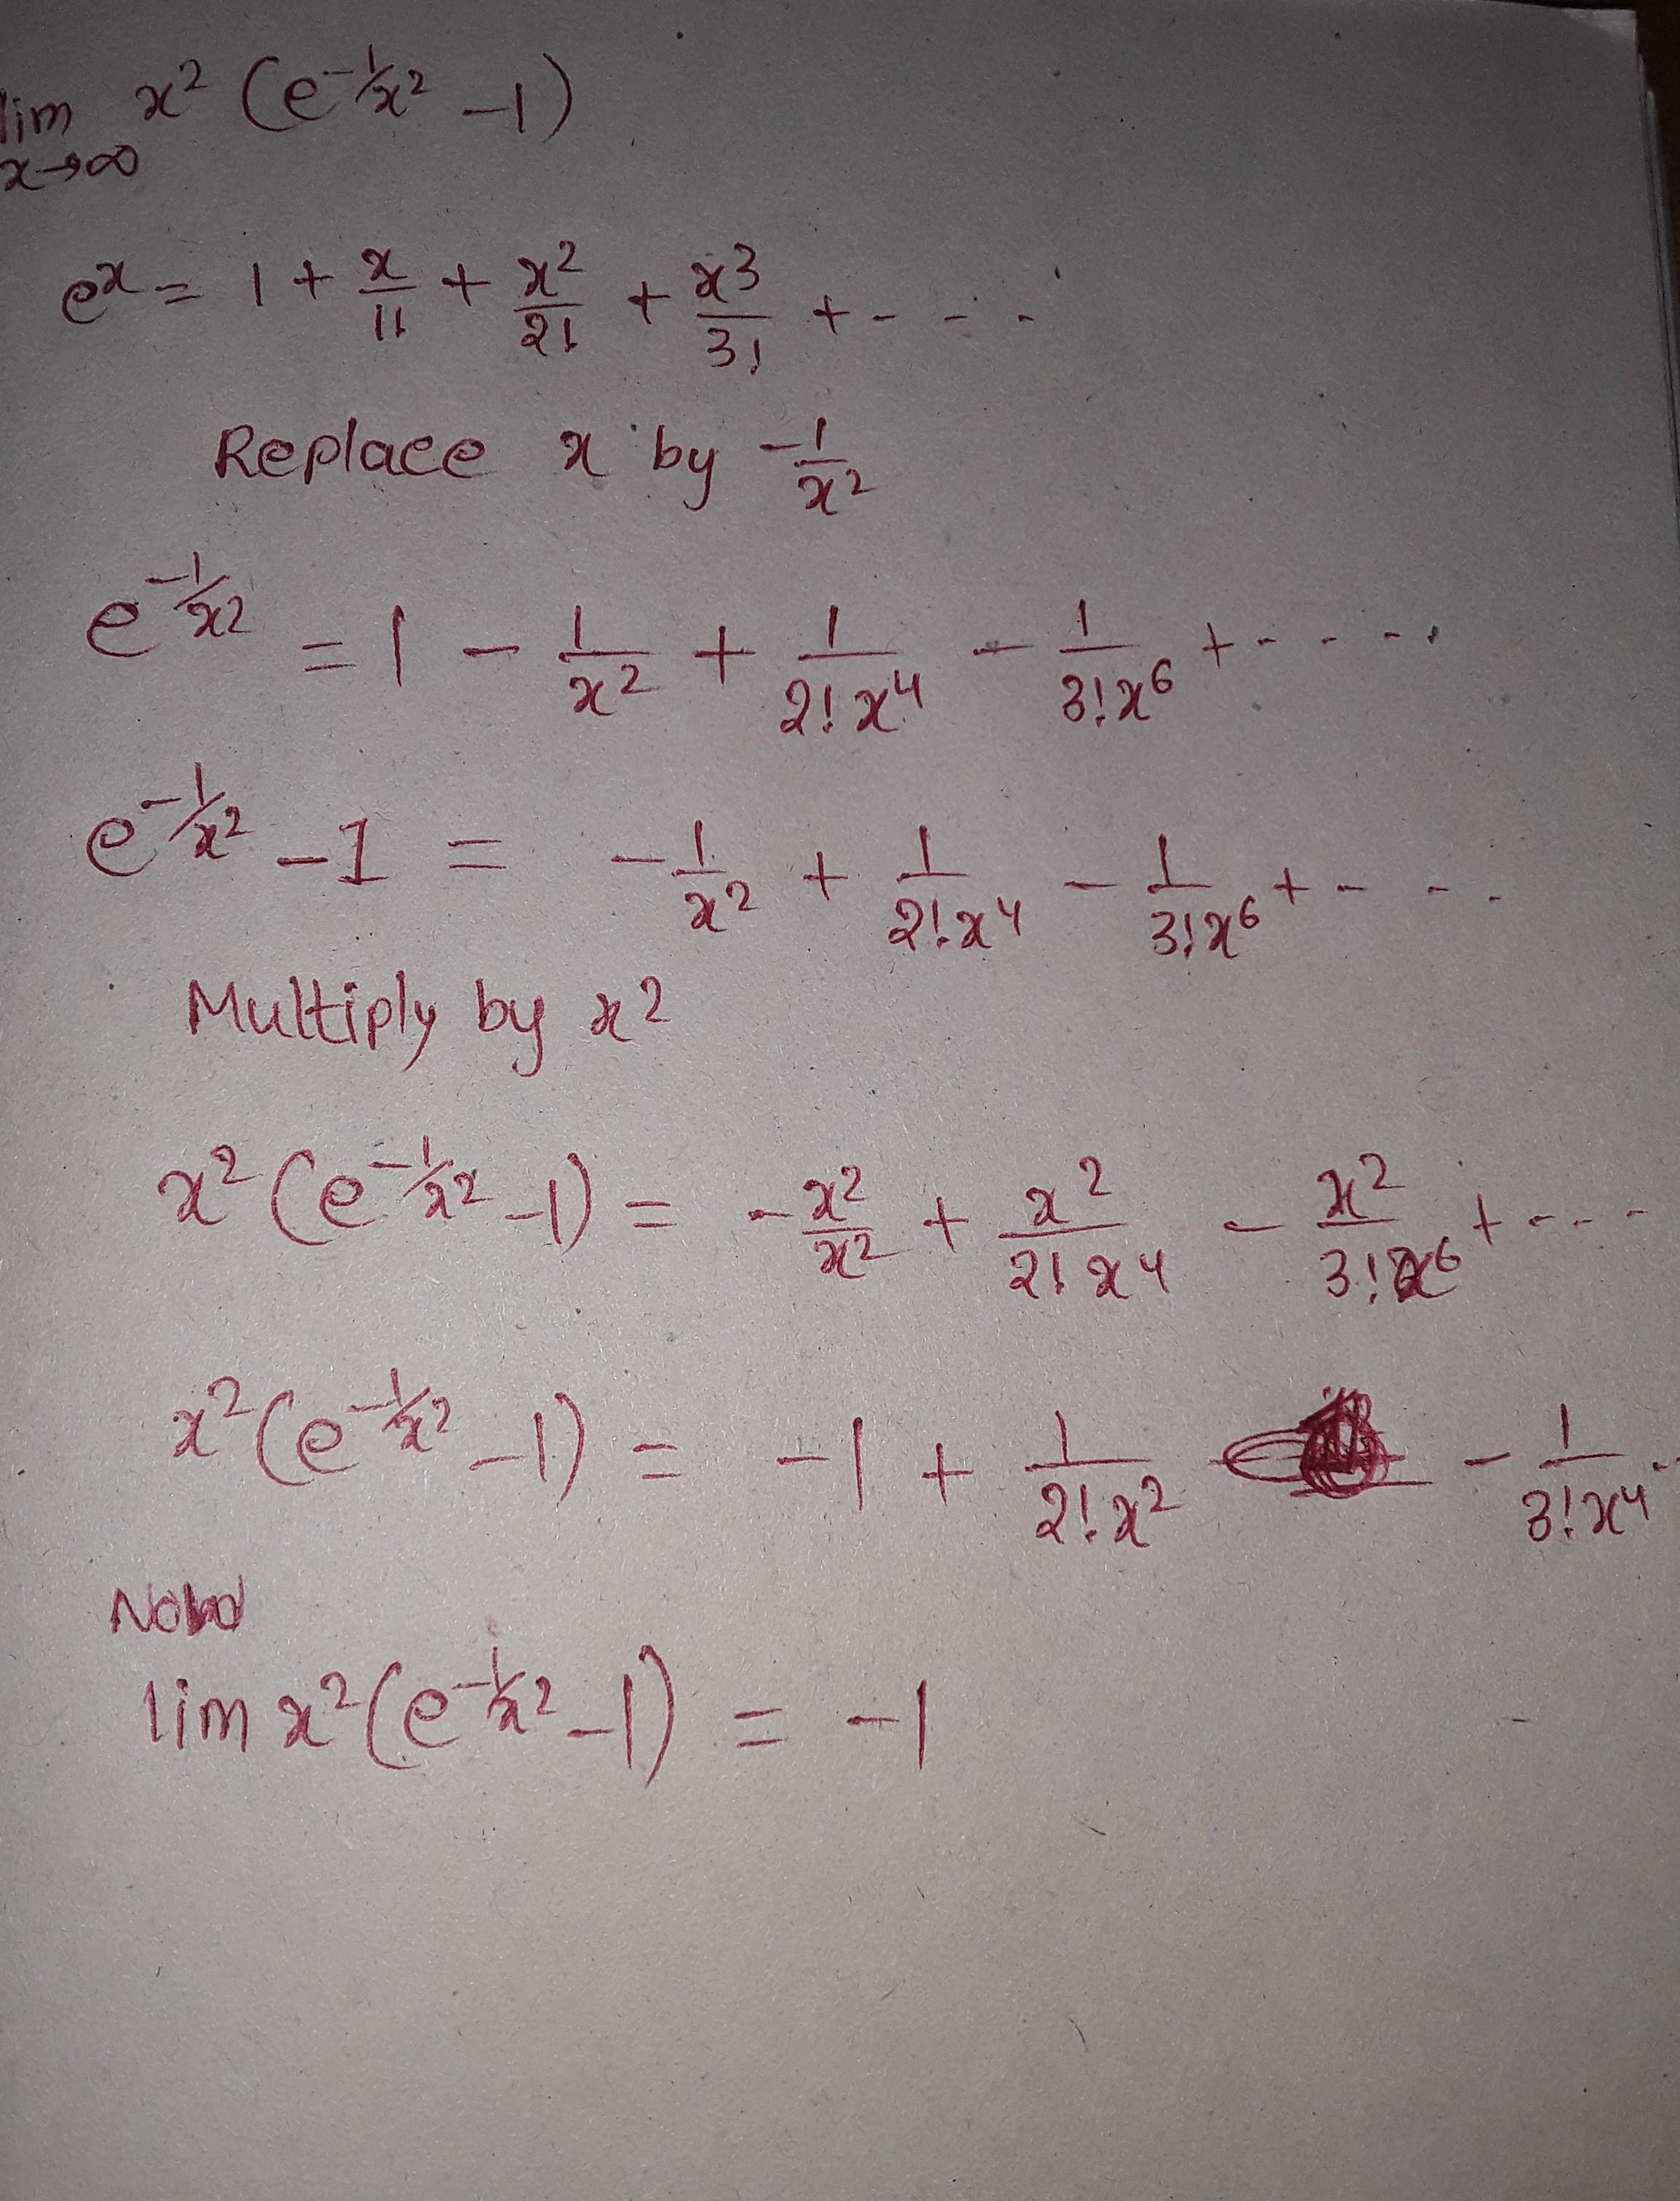 lim x² (e^-1/x² -1)
x→∞
e^x = 1 + x/1! + x²/2! + x³/3! + - - - -
Replace x by -1/x²
e^-1/x² = 1 - 1/x² + 1/2!x⁴ - 1/3!x⁶ + - - - - -
e^-1/x² -1 = -1/x² + 1/2!x⁴ - 1/3!x⁶ + - - -
Multiply by x²
x² (e^-1/x² -1) = -x²/x² + x²/2!x⁴ - x²/3!x⁶ + - - - -
x² (e^-1/x² -1) = -1 + 1/2!x² - 1/3!x⁴ - -
Now
lim x² (e^-1/x² -1) = -1